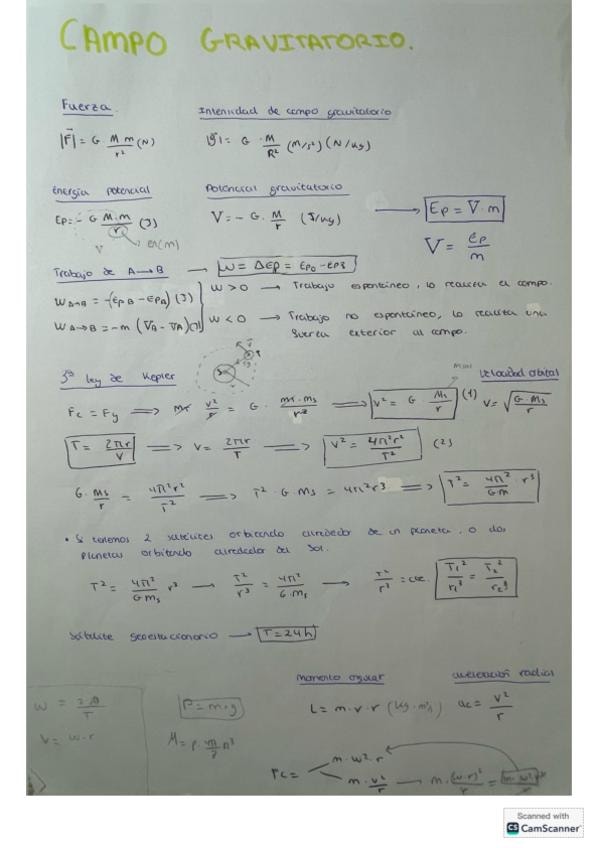 CAMPO GRAVITATORIO.
Fuerza. Intensidad de campo gravitatorio
|F⃗| = G · M m / r² (N) |g⃗| = G · M / R² (m/s²) (N/kg)
Energía potencial Potencial gravitatorio
Ep = - G M·m / r (J) V = - G · M / r (J/kg) → Ep = V · m
en (m) V = Ep / m
Trabajo de A→B → W = ΔEp =
W A→B = -(Ep B - Ep A) (J) W > 0 → Trabajo espontáneo, lo realiza el campo.
W A→B = -m (V B - V A) (J) W < 0 → Trabajo no espontáneo, lo realiza una
fuerza exterior al campo.
3ª ley de Kepler Velocidad orbital
Fc = Fg ⟹ m v² / r = G · m · Ms / r² ⟹ v² = G · Ms / r (1) V = √(G · Ms / r)
T = 2πr / V ⟹ V = 2πr / T ⟹ V² = 4π²r² / T² (2)
G · Ms / r = 4π²r² / T² ⟹ T² · G Ms = 4π² r³ ⟹ T² = 4π² / GM · r³
• Si tenemos 2 satélites orbitando alrededor de un planeta, o dos
planetas orbitando alrededor del Sol.
T² = 4π² / G Ms r³ → T² / r³ = 4π² / G · Ms → T² / r³ = cte. T₁² / r₁³ = T₂² / r₂³
Satélite geoestacionario → T = 24h
momento angular aceleración radial
L = m · v · r (kg · m²/s) ac = v² / r
P = m · g
V = w · r
Fc = m · w² · r
m · v² / r → m · (w·r)² / r = m · w² r
Scanned with
CS CamScanner